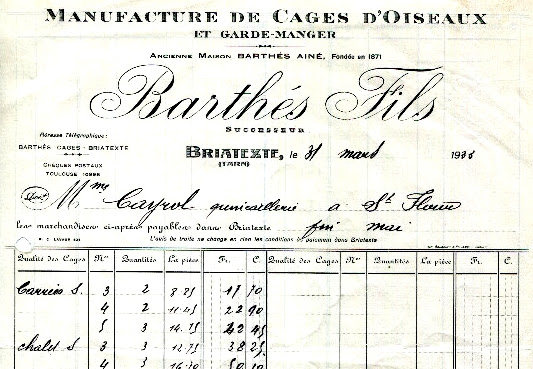 MANUFACTURE DE CAGES D'OISEAUX
ET GARDE-MANGER
ANCIENNE MAISON BARTHÉS AINÉ, Fondée en 1871
Barthés Fils
SUCCESSEUR
Adresse Télégraphique:
BARTHÉS-CAGES-BRIATEXTE
CHEQUES POSTAUX
TOULOUSE
BRIATEXTE, le 31 mars 193
(TARN)
Mme Cayrol quincaillerie a St Flour
Les marchandises ci-après payables dans Briatexte fin mai
L'avis de traite ne change en rien les conditions de paiement dans Briatexte
Qualité des Cages Nos Quantités La pièce Fr. C. Qualité des Cages Nos Quantités La pièce Fr. C.
Carriés S. 3 2 8.85 17 70
4 2 11.45 22 90
5 3 14.15 42 45
chalet S 3 3 12.75 38 25
4 3 16.70 50 10